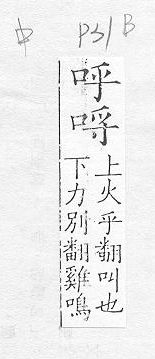 P31/B
呼哷
上火乎翻叫也
下力別翻雞鳴